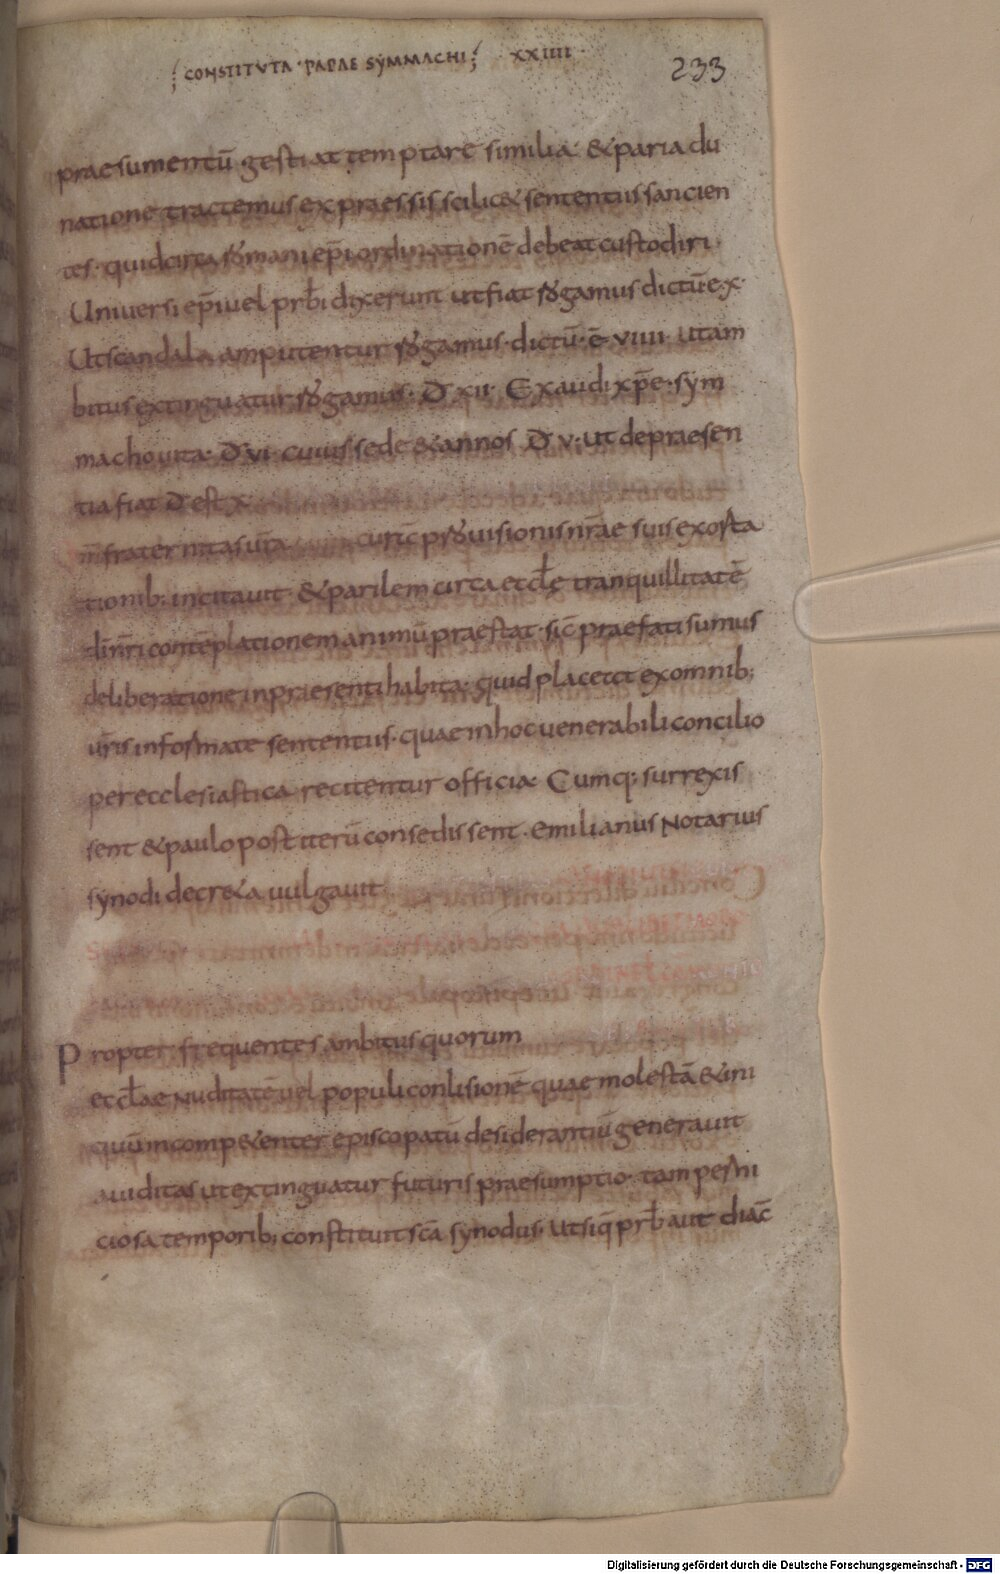 CONSTITUTA · PAPAE SYMMACHI XXIIII
233
praesumentū gestiat temptare similia· & paria du
natione tractemus expraessis scilic& sententiis sancien
tes· quid circa romani epi ordinationē debeat custodiri·
Universi epi vel prbi dixerunt ut fiat rogamus dictū ē x·
Ut scandala amputentur rogamus· dictū· ē viiii· ut am
bitus extinguatur rogamus· D xii· Exaudi xpe· sym
macho vita· D vi· cuius sede & annos D v· ut de praesen
tia fiat D est x
fraternitas vra cuncte provisionis nrae suis exorta
tionib; incitavit & parilem circa eccle tranquillitatē
di nri contēplationem animū praestat· sic praefati sumus
deliberatione in praesenti habita· quid placetct ex omnib;
vris informate sententiis· quae in hoc venerabili concilio
per ecclesiastica recitentur officia· Cumq; surrexis
sent & paulo post iterū consedissent· emilianus Notarius
synodi decr&a vulgavit
Propter frequentes ambitus quorum
ecclae Nuditatē vel populi conlisionē quae molestā & ini
quū incomp&enter episcopatū desiderantiū generavit
aviditas ut extinguatur futuris praesumptio· tam perni
ciosa temporib; constituit sca synodus· ut siq prb aut diac
Digitalisierung gefördert durch die Deutsche Forschungsgemeinschaft - DFG